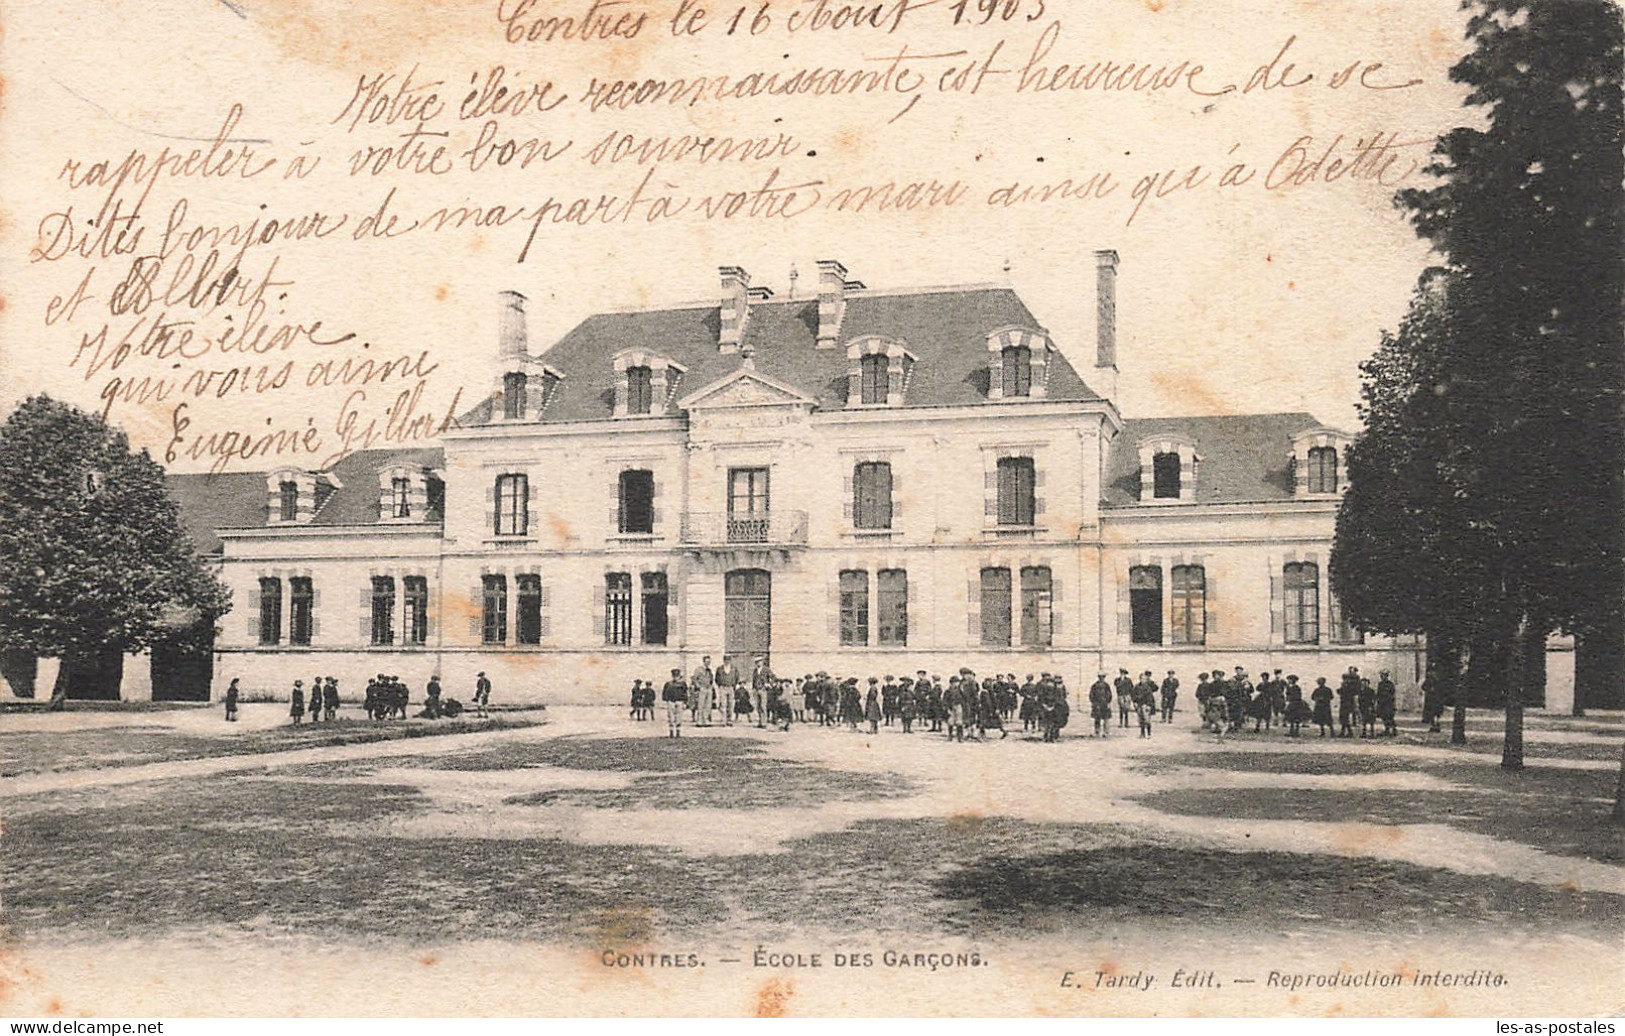 Contres le 16 Août 1903
Votre élève reconnaissante, est heureuse de se
rappeler à votre bon souvenir.
Dites bonjour de ma part à votre mari ainsi qu'à Odette
et Albert.
Votre élève
qui vous aime
Eugénie Gilbert
CONTRES. — ÉCOLE DES GARÇONS.
E. Tardy Édit. — Reproduction interdite.
les-as-postales